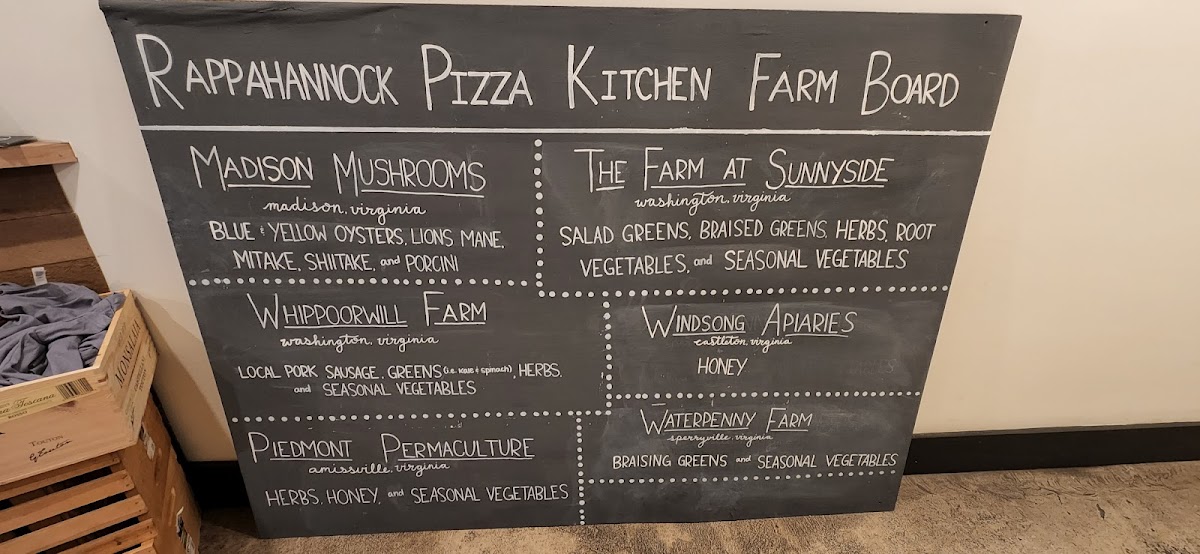 RAPPAHANNOCK PIZZA KITCHEN FARM BOARD
MADISON MUSHROOMS
madison, virginia
BLUE & YELLOW OYSTERS, LIONS MANE,
MITAKE, SHIITAKE, and PORCINI
THE FARM AT SUNNYSIDE
washington, virginia
SALAD GREENS, BRAISED GREENS, HERBS, ROOT
VEGETABLES, and SEASONAL VEGETABLES
WHIPPOORWILL FARM
washington, virginia
LOCAL PORK SAUSAGE, GREENS (i.e. kale & spinach), HERBS,
and SEASONAL VEGETABLES
WINDSONG APIARIES
castleton, virginia
HONEY
PIEDMONT PERMACULTURE
amissville, virginia
HERBS, HONEY, and SEASONAL VEGETABLES
WATERPENNY FARM
sperryville, virginia
BRAISING GREENS and SEASONAL VEGETABLES
Toscana